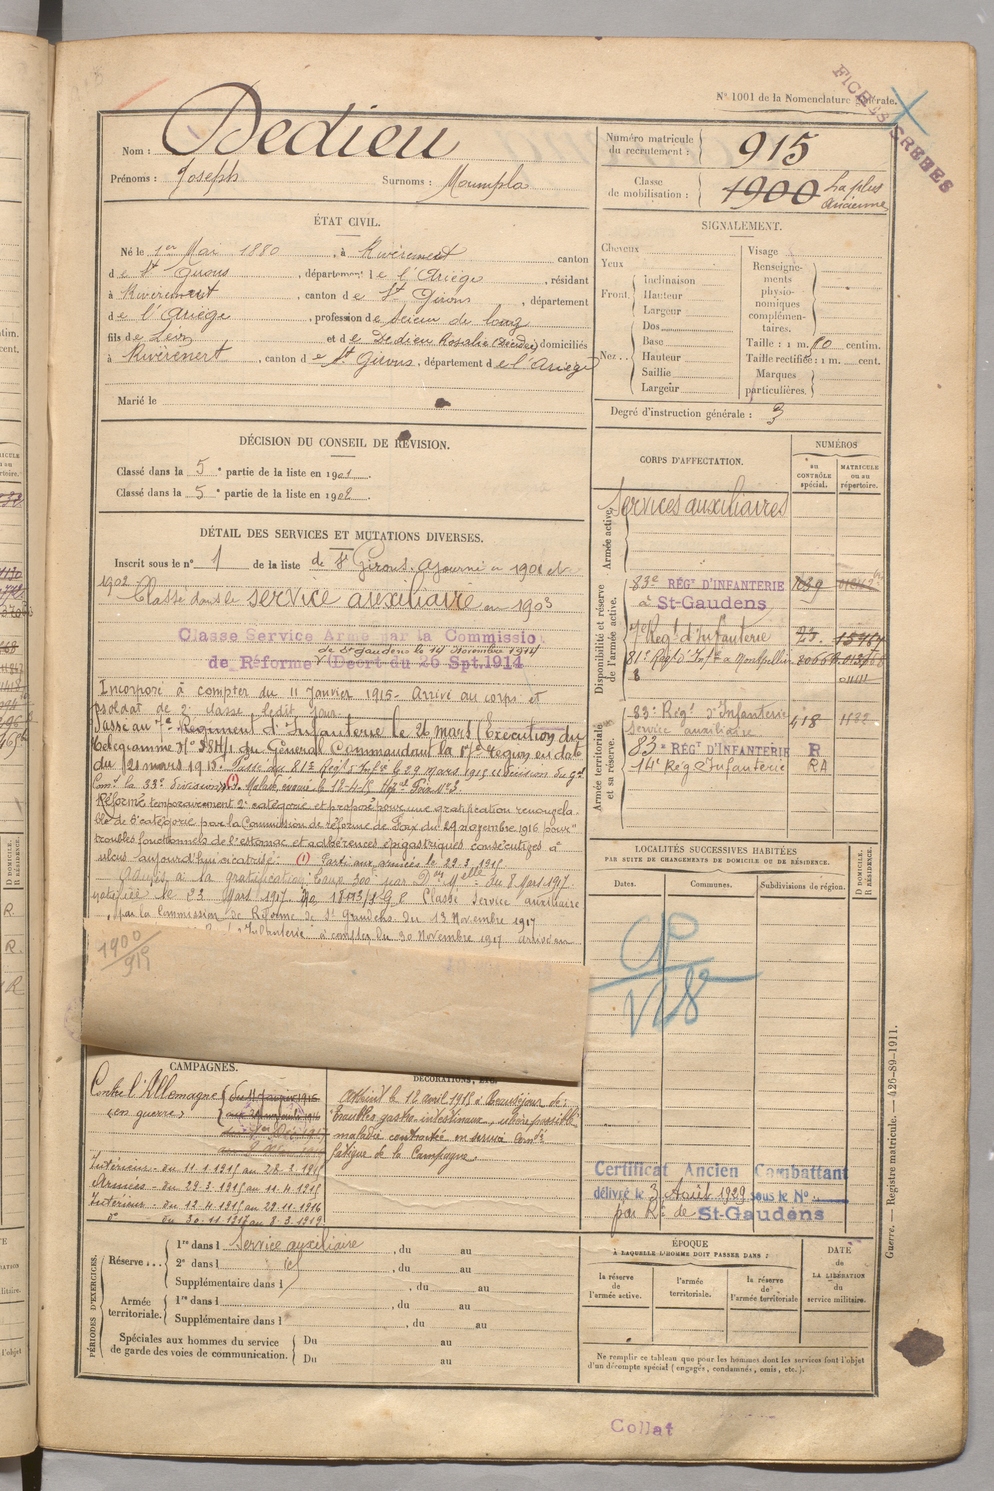 FICHES CRÉÉES
N° 1001 de la Nomenclature générale.
Nom : Dedieu
Prénoms : Joseph Surnoms : Moumpla
Numéro matricule du recrutement : 915
Classe de mobilisation : 1900 La plus ancienne
ÉTAT CIVIL.
Né le 1er Mai 1880, à Rivèrenert canton
de St Girons, département de l'Ariège, résidant
à Rivèrenert, canton de St Girons, département
de l'Ariège, profession de scieur de long
fils de Léon et de Dedieu Rosalie (Décédée) domiciliés
à Rivèrenert, canton de St Girons, département de l'Ariège
Marié le
SIGNALEMENT.
Cheveux
Yeux
Front. Inclinaison
Hauteur
Largeur
Nez... Dos
Base
Hauteur
Saillie
Largeur
Visage
Renseignements physionomiques complémentaires.
Taille : 1 m. 80 centim.
Taille rectifiée : 1 m. cent.
Marques particulières.
Degré d'instruction générale : 3
DÉCISION DU CONSEIL DE RÉVISION.
Classé dans la 5e partie de la liste en 1901.
Classé dans la 5e partie de la liste en 1902.
CORPS D'AFFECTATION.
NUMÉROS
au CONTRÔLE spécial.
MATRICULE ou au répertoire.
Armée active.
Services auxiliaires
Disponibilité et réserve de l'armée active.
83e RÉGt D'INFANTERIE
à St-Gaudens
7e Regt d'Infanterie 23. 15967
81e Regt d'Infie à Montpellier
Armée territoriale et sa réserve.
83e Régt d'Infanterie 418 1882
Service auxiliaire
83e RÉGt D'INFANTERIE R
14e Rég d'Infanterie RA
DÉTAIL DES SERVICES ET MUTATIONS DIVERSES.
Inscrit sous le n° 1 de la liste de St Girons. Ajourné en 1901 et
1902 Classé dans le service auxiliaire en 1903
Classé Service Armé par la Commissio
de St Gaudens le 14 Novembre 1914
de Réforme (Décret du 26 Spt. 1914
Incorporé à compter du 11 Janvier 1915. Arrivé au corps et
soldat de 2e classe ledit jour.
Passé au 7e Régiment d'Infanterie le 26 mars (Exécution du
télégramme N° 38H/1 du Général Commandant la 17e région en date
du 21 mars 1915. Passé au 81e Régt d'Infie le 29 mars 1915 décision du Gal
Comt la 33e division (1) Malade, évacué le 12-4-15
Réformé temporairement 2e catégorie et proposé pour une gratification renouvela-
ble de 8e catégorie par la Commission de réforme de Foix du 29 novembre 1916 pour
troubles fonctionnels de l'estomac et adhérences épigastriques consécutives à
ulcus aujourd'hui cicatrisé. (1) Parti aux armées le 29.3.1915
Admis à la gratification taux 300f par Don Melle du 8 Mars 1917
notifiée le 23 Mars 1917. Classé Service auxiliaire
par la Commission de Réforme de St Gaudens du 13 Novembre 1917
d'Infanterie à compter du 30 Novembre 1917 arrivé au
1900
915
LOCALITÉS SUCCESSIVES HABITÉES
PAR SUITE DE CHANGEMENTS DE DOMICILE OU DE RÉSIDENCE.
D DOMICILE. R RÉSIDENCE.
Dates. Communes. Subdivisions de région.
CAMPAGNES.
Contre l'Allemagne
(en guerre)
Intérieur - du 11.1.1915 au 28.3.1915
Armées - du 29.3.1915 au 11.4.1915
Intérieur - du 12.4.1915 au 29.11.1916
do du 30.11.1917 au 8.3.1919
DÉCORATIONS, ETC.
Atteint le 12 avril 1915 à Beauséjour de :
Troubles gastro-intestinaux, ulcère possible
maladie contractée en service comdé
fatigue de la Campagne
Certificat Ancien Combattant
délivré le 3 Août 1929 sous le N°
par Rt de St-Gaudens
PÉRIODES D'EXERCICES.
Réserve... 1re dans l Service auxiliaire, du au
2e dans l id, du au
Supplémentaire dans l, du au
Armée territoriale. 1re dans l, du au
Supplémentaire dans l, du au
Spéciales aux hommes du service de garde des voies de communication. Du au
Du au
ÉPOQUE
À LAQUELLE L'HOMME DOIT PASSER DANS :
la réserve de l'armée active.
l'armée territoriale.
la réserve de l'armée territoriale
DATE de LA LIBÉRATION du service militaire.
Ne remplir ce tableau que pour les hommes dont les services font l'objet
d'un décompte spécial (engagés, condamnés, omis, etc.).
Guerre. — Registre matricule. — 426-89-1911.
Collat